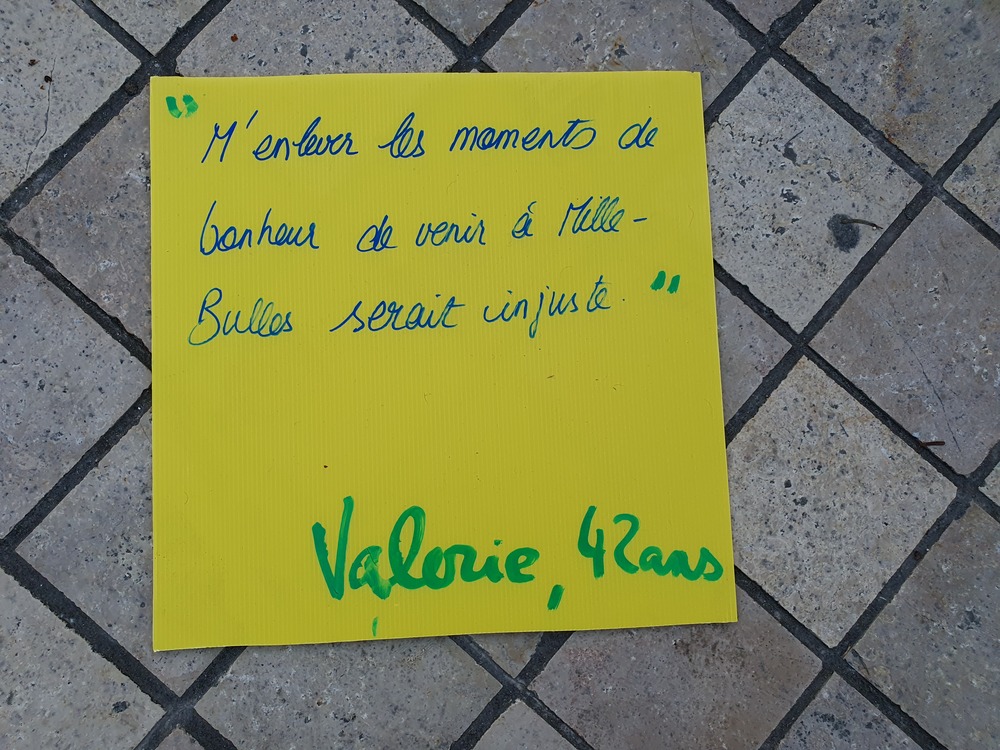 " M'enlever les moments de
bonheur de venir à Mille-
Bulles serait injuste. "
Valerie, 42ans